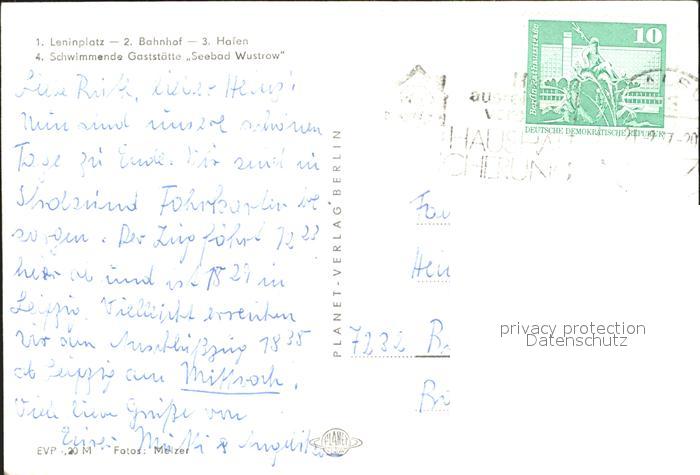 1. Leninplatz — 2. Bahnhof — 3. Hafen
4. Schwimmende Gaststätte „Seebad Wustrow"
Liebe Ruth, lieber Heinz!
Nun sind unsere schönen
Tage zu Ende. Wir sind in
Stralsund Fahrkarten be
sorgen. Der Zug fährt 7 23
hier ab und ist 15 29 in
Leipzig. Vielleicht erreichen
wir den Anschlußzug 18 35
ab Leipzig am Mittwoch.
Viele liebe Grüße von
Eurer & Angelika
EVP -,20 M Fotos: Melzer
PLANET-VERLAG BERLIN
PLANET
Berlin-Rathausstraße
10
DEUTSCHE DEMOKRATISCHE REPUBLIK
7232 B
privacy protection
Datenschutz